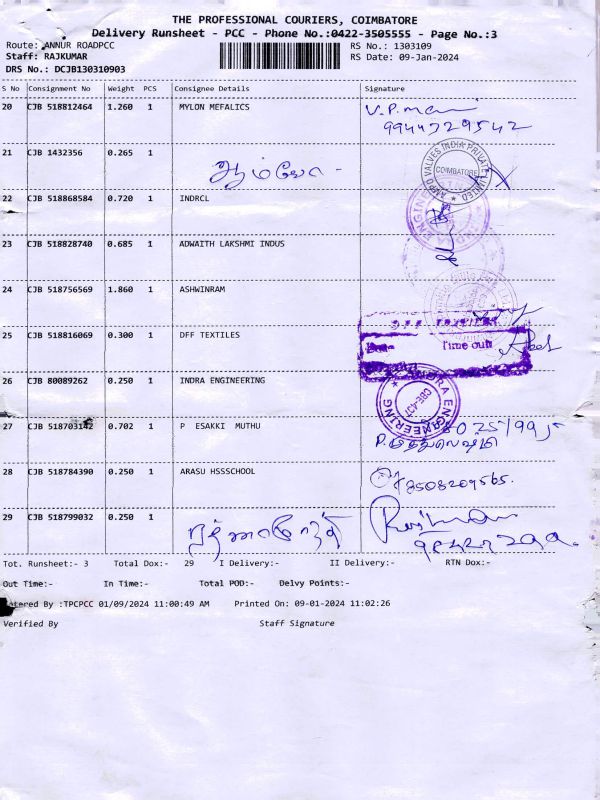 THE PROFESSIONAL COURIERS, COIMBATORE
Delivery Runsheet - PCC - Phone No.:0422-3505555 - Page No.:3
Route: ANNUR ROADPCC RS No.: 1303109
Staff: RAJKUMAR RS Date: 09-Jan-2024
DRS No.: DCJB130310903
S No Consignment No Weight PCS Consignee Details Signature
20 CJB 518812464 1.260 1 MYLON MEFALICS V.P.mani
9944729542
21 CJB 1432356 0.265 1
AMPO VALVES INDIA PRIVATE LIMITED
COIMBATORE
22 CJB 518868584 0.720 1 INDRCL
23 CJB 518828740 0.685 1 ADWAITH LAKSHMI INDUS
24 CJB 518756569 1.860 1 ASHWINRAM
25 CJB 518816069 0.300 1 DFF TEXTILES
Time out
26 CJB 80089262 0.250 1 INDRA ENGINEERING
INDRA ENGINEERING
CBE-437
27 CJB 518703142 0.702 1 P ESAKKI MUTHU
28 CJB 518784390 0.250 1 ARASU HSSSCHOOL
8508209565.
29 CJB 518799032 0.250 1
Tot. Runsheet:- 3 Total Dox:- 29 I Delivery:- II Delivery:- RTN Dox:-
Out Time:- In Time:- Total POD:- Delvy Points:-
Entered By :TPCPCC 01/09/2024 11:00:49 AM Printed On: 09-01-2024 11:02:26
Verified By Staff Signature